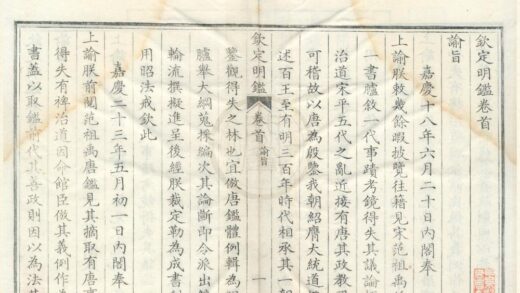 欽定明鑑卷首
諭旨
嘉慶十八年六月二十日內閣奉
上諭朕敕幾餘暇披覽往籍見宋范祖禹
一書臚敘一代事蹟考鏡得失其議論
治道宋平五代之亂近接有唐其政教
可稽故以唐為殷鑒我朝紹膺大統道
述百王至有明三百年時代相承其一
欽定明鑑 卷首 諭旨 一
鑒觀得失之林也宜倣唐鑑體例輯為
臚舉大綱蒐採編次其論斷即令派出
輪流撰擬進呈後經朕裁定勒為成書
用昭法戒欽此
嘉慶二十三年五月初一日內閣奉
上諭朕前閱范祖禹唐鑑見其摘取有唐
得失有裨治道因命館臣倣其義例作
書蓋以取鑑前代其善政則因以為法